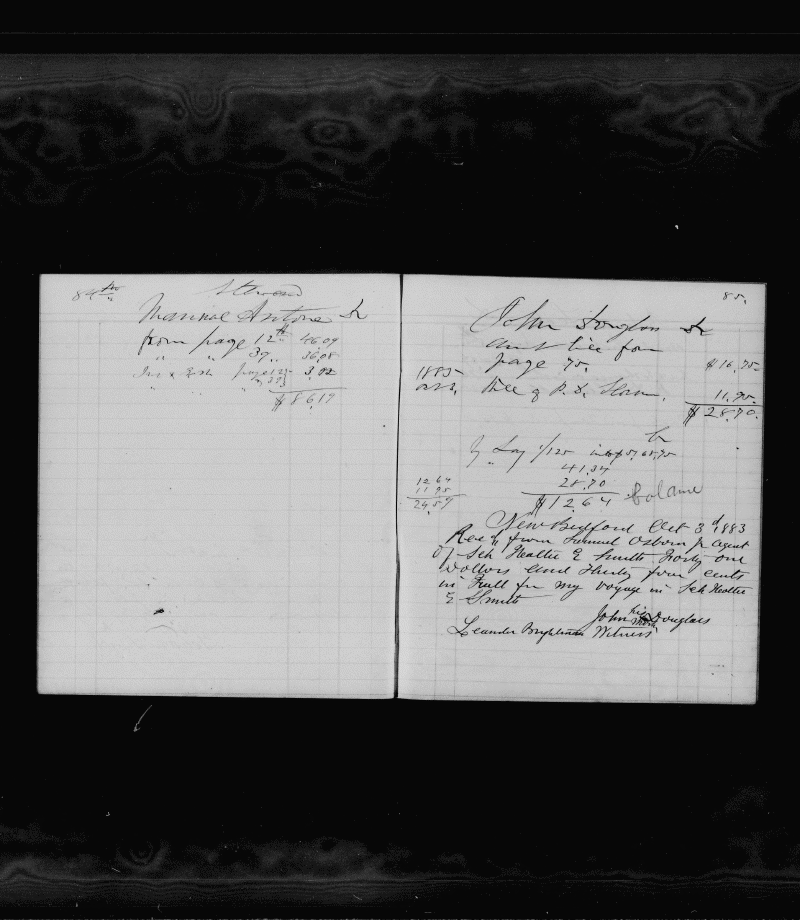 84
Manuel Antone Dr
from page 12th 46.09
" " 39 " 36.08
Int & Exch page 12 3.92
" " " 39
$86.19
85.
John Douglas Dr
amt bill from
page 75. $16.75
1883
bill of 11.95
$28.70
Cr
By Lay 1/125
" 41.34
28.70
$12.64 balance
12.64
11.95
24.59
New Bedford Oct 3d 1883
Recd from Samuel Osborn Jr agent
of Sch Hattie E Smith Forty one
Dollars and thirty four cents
in Full for my voyage in Sch Hattie
E Smith
John his mark Douglass
Leander Brightman Witness